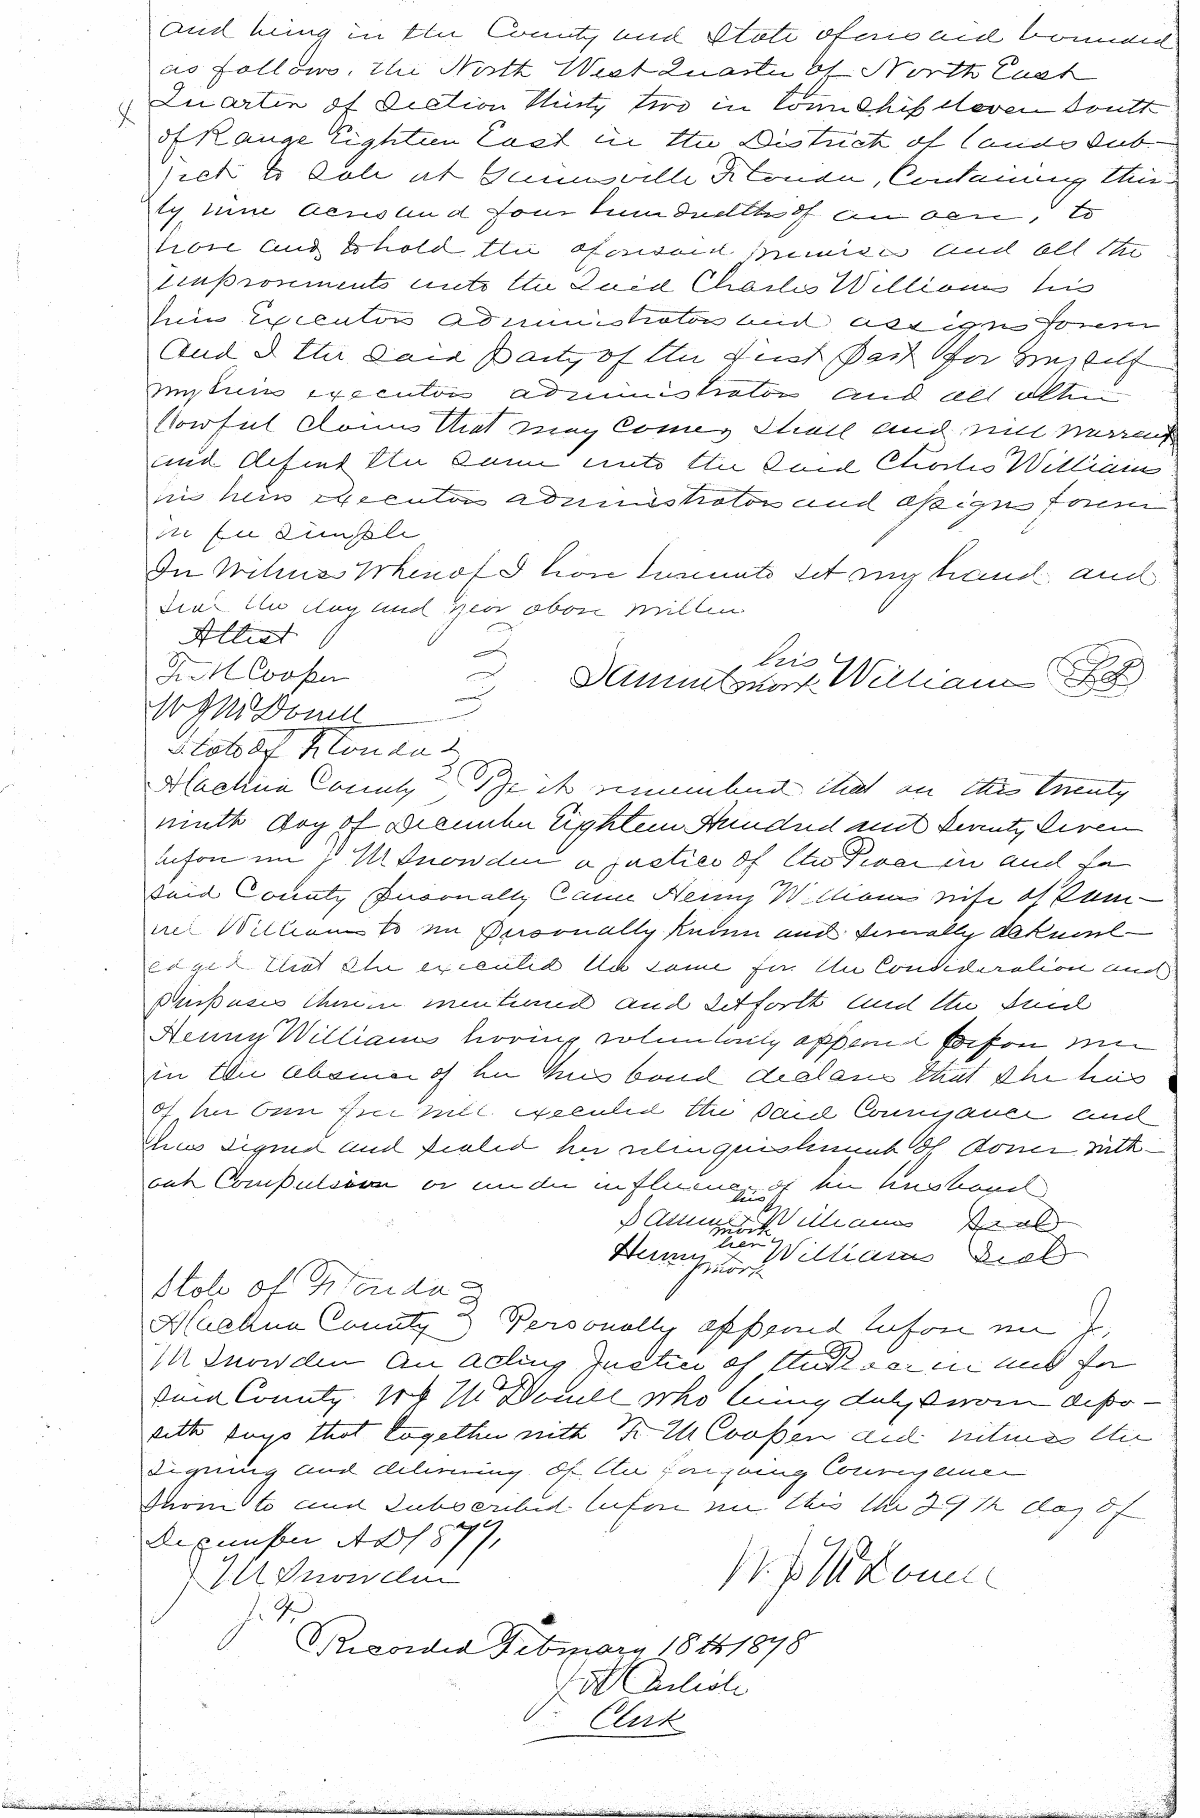 and being in the County and State aforesaid bounded
as follows. The North West Quarter of North East
Quarter of Section Thirty two in township eleven South
of Range Eighteen East in the District of lands sub-
ject to Sale at Gainesville Florida, Containing thir-
ty nine acres and four hundredths of an acre, to
have and to hold the aforesaid premises and all the
improvements unto the Said Charles Williams his
heirs Executors administrators and assigns forever
And I the Said Party of the first Part for myself
my heirs executors administrators and all other
lawful claims that may come, Shall and will warrant
and defend the same unto the Said Charles Williams
his heirs executors administrators and assigns forever
in fee Simple
In Witness Whereof I have hereunto set my hand and
seal the day and year above written
Attest
F. M Cooper
W J McDonell
his
Samuel mark Williams LS
State of Florida
Alachua County Be it remembered that on this twenty
ninth day of December Eighteen Hundred and Seventy Seven
before me J M Snowden a justice of the Peace in and for
said County personally Came Henny Williams wife of Sam-
uel Williams to me personally known and severally acknowl-
edged that She executed the same for the Consideration and
purposes therein mentioned and Set forth and the said
Henny Williams having voluntarily appeared before me
in the absence of her husband declares that She has
of her own free will executed the said Conveyance and
has signed and sealed her relinquishment of dower with-
out Compulsion or under influence of her husband
his
Samuel Williams Seal
mark
her
Henny Williams Seal
mark
State of Florida
Alachua County Personally appeared before me J.
M Snowden an acting Justice of the Peace in and for
said County W J McDonell who being duly Sworn depo-
seth says that together with F. M Cooper did witness the
signing and delivering of the foregoing Conveyance
Sworn to and subscribed before me this the 29th day of
December A D 1877,
J M Snowden
W. J. McDonell
J. P.
Recorded February 18th 1878
J A Carlisle
Clerk